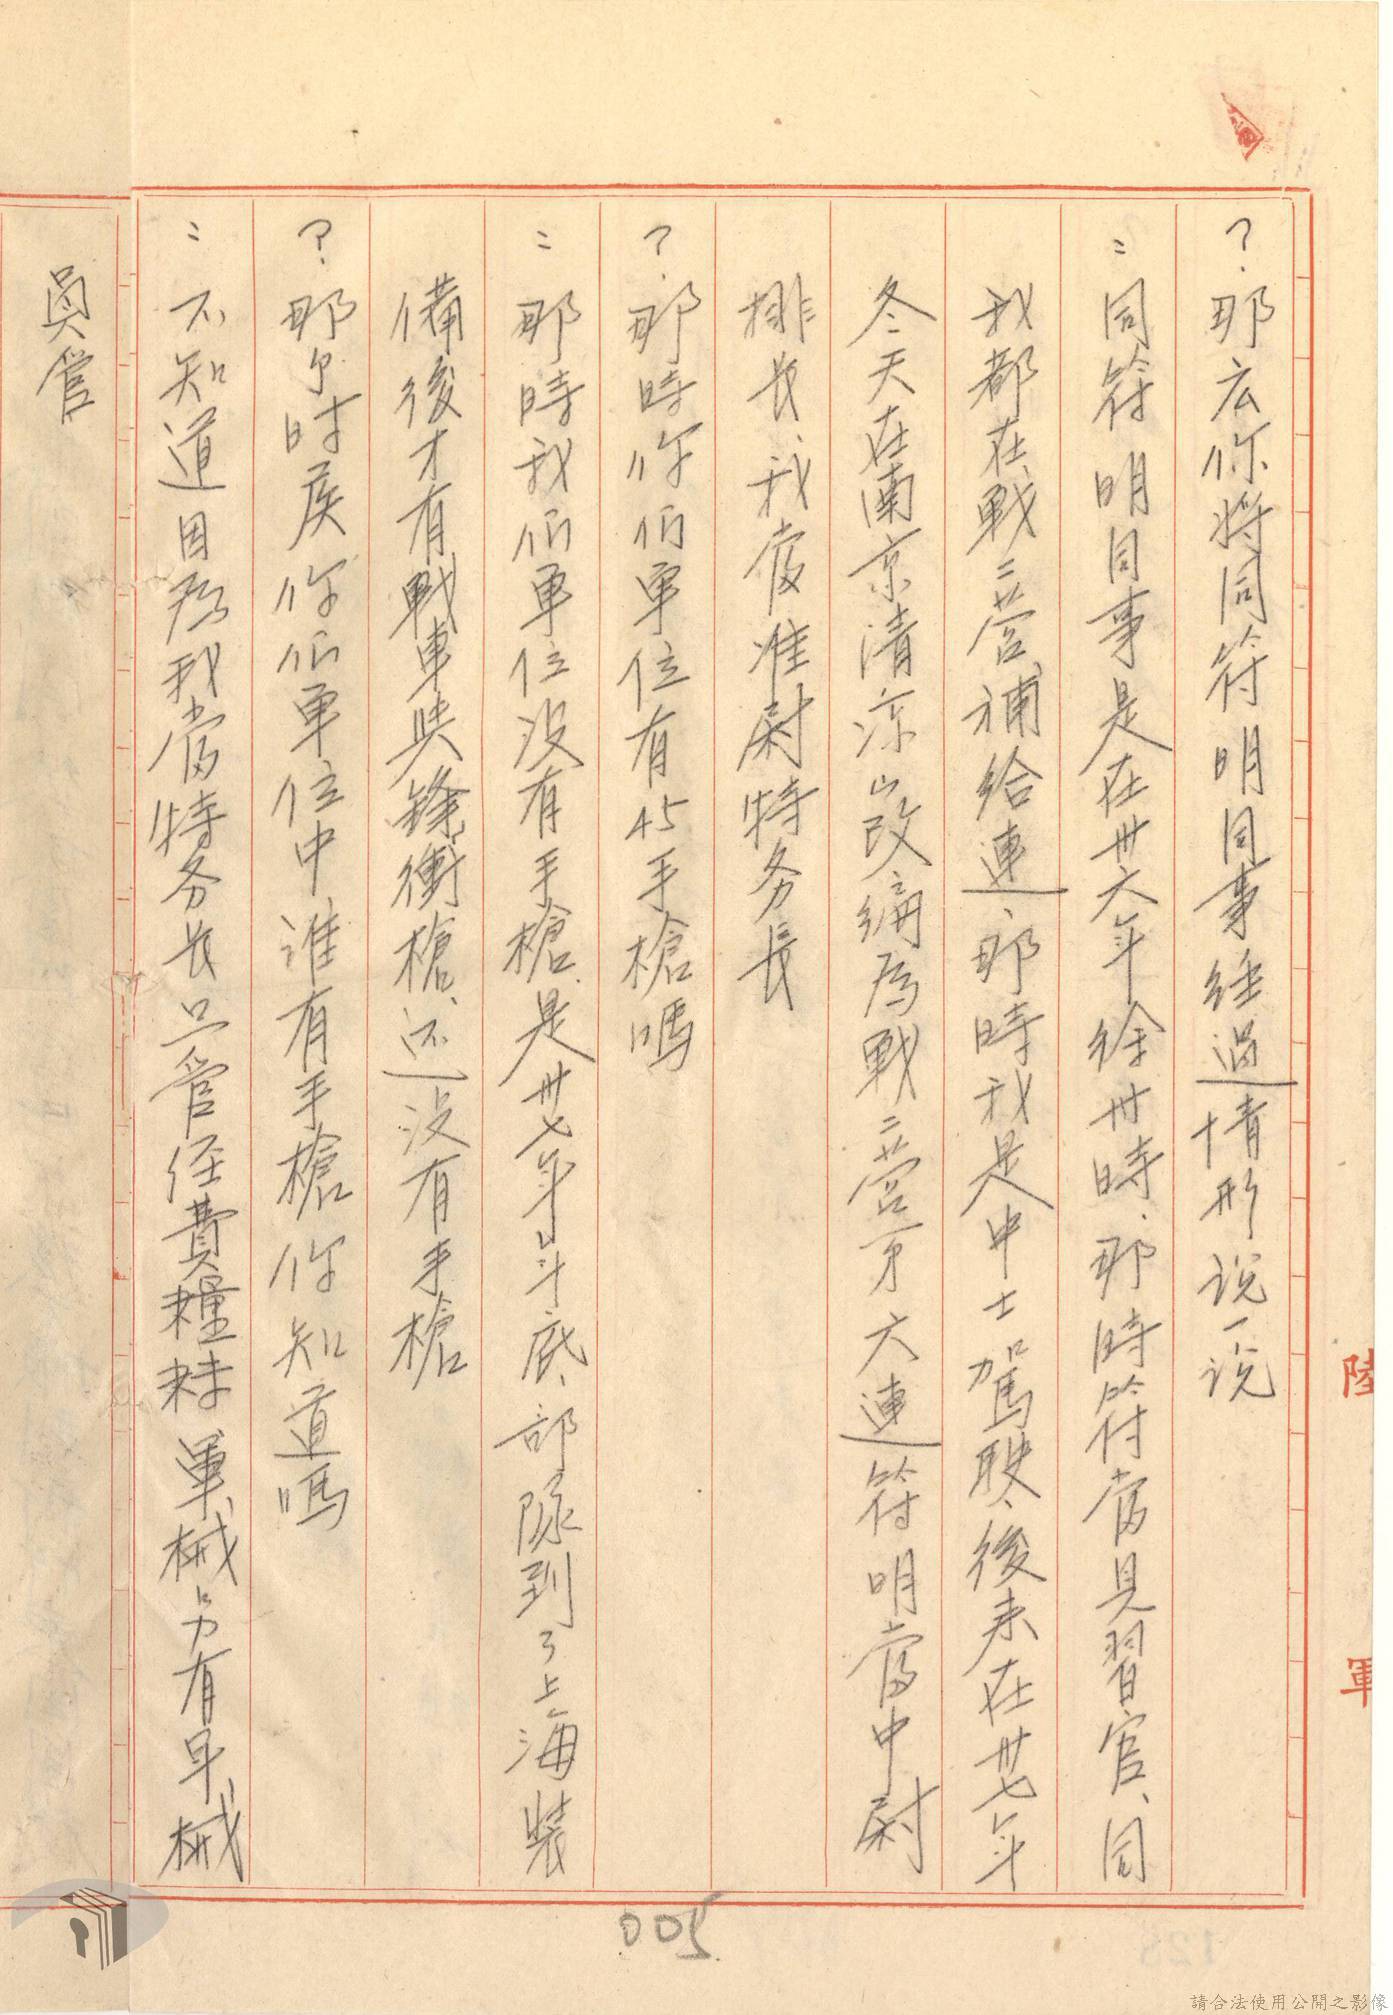 ？.那么你將同符明同事經過情形说一说
：同符明同事是在卅六年徐卅時、那時符當見習官、同
我都在戰二营補給連、那時我是中士駕駛、後来在卅七年
冬天在南京清凉山改編為戰二营第六連符明當中尉
排长、我當准尉特务長
？.那時你们单位有45手槍嗎
：那時我们单位没有手槍、是卅七年年底、部隊到了上海裝
備後才有戰車與鋒衝槍、还没有手槍
？.那個时候你们单位中谁有手槍你知道嗎
：不知道因為我當特务长只管经費糧秣軍械另有軍械
員管
005
陸軍
請合法使用公開之影像